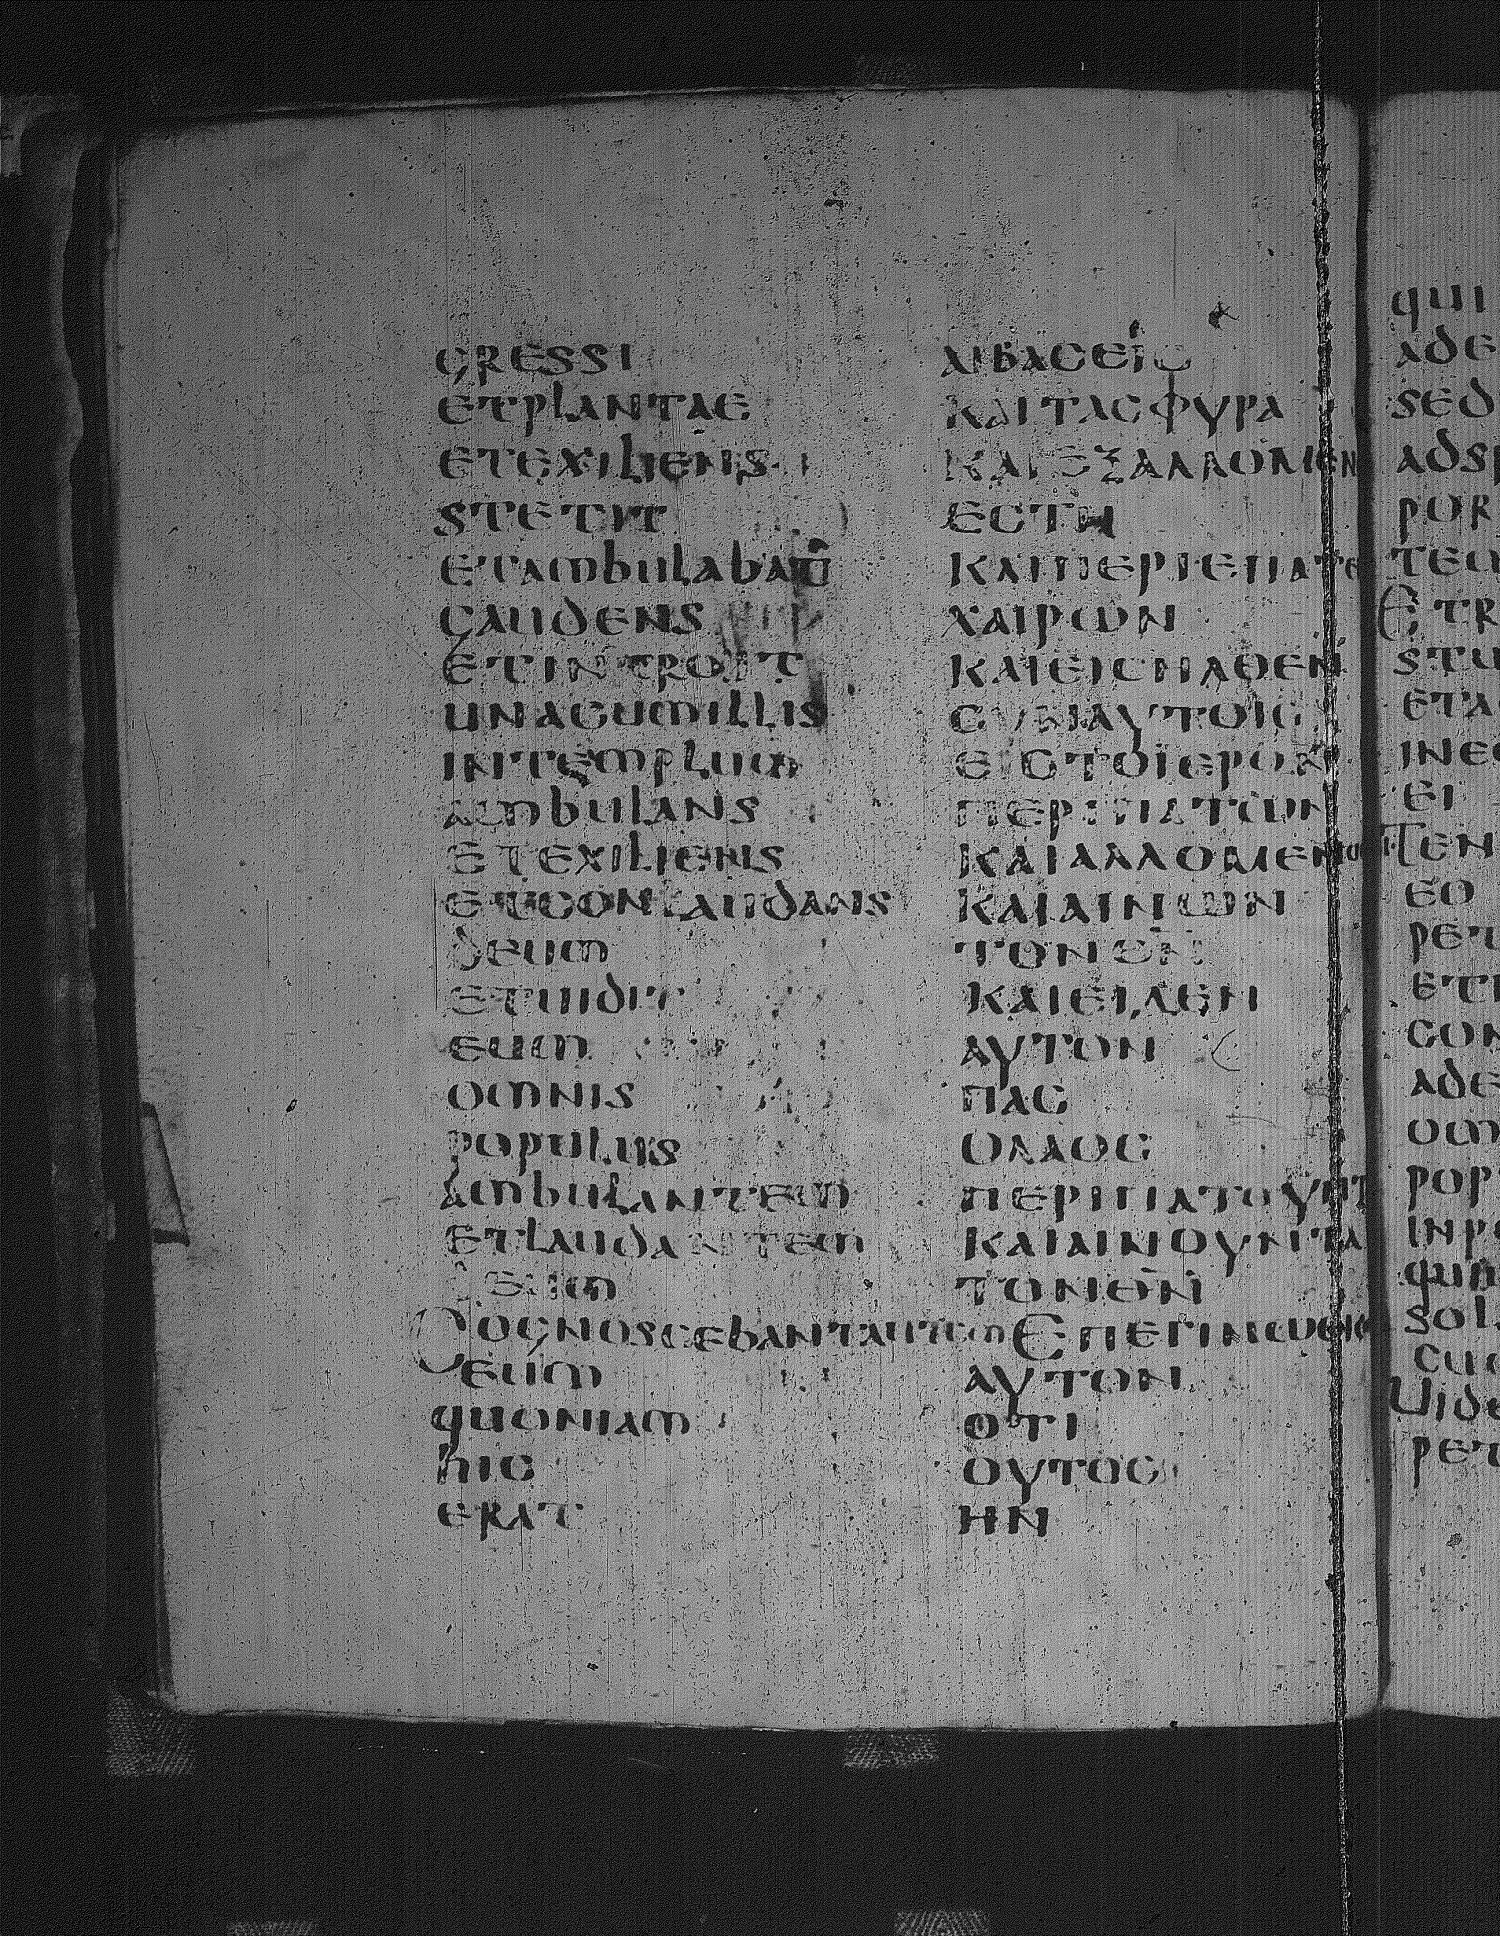 GRESSI
ETPLANTAE
ETEXILIENS
STETIT
ETAMBULABAT
GAUDENS
ETINTROIIT
UNACUMILLIS
INTEMPLUM
AMBULANS
ETEXILIENS
ETCONLAUDANS
DEUM
ETUIDIT
EUM
OMNIS
POPULUS
AMBULANTEM
ETLAUDANTEM
DEUM
COGNOSCEBANTAUTEM
EUM
QUONIAM
HIC
ERAT
ΑΙΒΑϹΕΙϹ
ΚΑΙΤΑϹΦΥΡΑ
ΚΑΙΕΞΑΛΛΟΜΕΝ
ΕϹΤΗ
ΚΑΙΠΕΡΙΕΠΑΤΕ
ΧΑΙΡΩΝ
ΚΑΙΕΙϹΗΛΘΕΝ
ϹΥΝΑΥΤΟΙϹ
ΕΙϹΤΟΪΕΡΟΝ
ΠΕΡΙΠΑΤΩΝ
ΚΑΙΑΛΛΟΜΕΝΟϹ
ΚΑΙΑΙΝΩΝ
ΤΟΝΘΝ
ΚΑΙΕΙΔΕΝ
ΑΥΤΟΝ
ΠΑϹ
ΟΛΑΟϹ
ΠΕΡΙΠΑΤΟΥΝΤ
ΚΑΙΑΙΝΟΥΝΤΑ
ΤΟΝΘΝ
ΕΠΕΓΙΝΩϹΚΟ
ΑΥΤΟΝ
ΟΤΙ
ΟΥΤΟϹ
ΗΝ
QUI
ADE
SED
ADSP
POR
TEM
ETR
STU
ETA
INEO
EI
TEN
EO
PET
ETI
CON
ADE
OM
POP
INPO
QUI
SOL
CUC
UIDE
PET